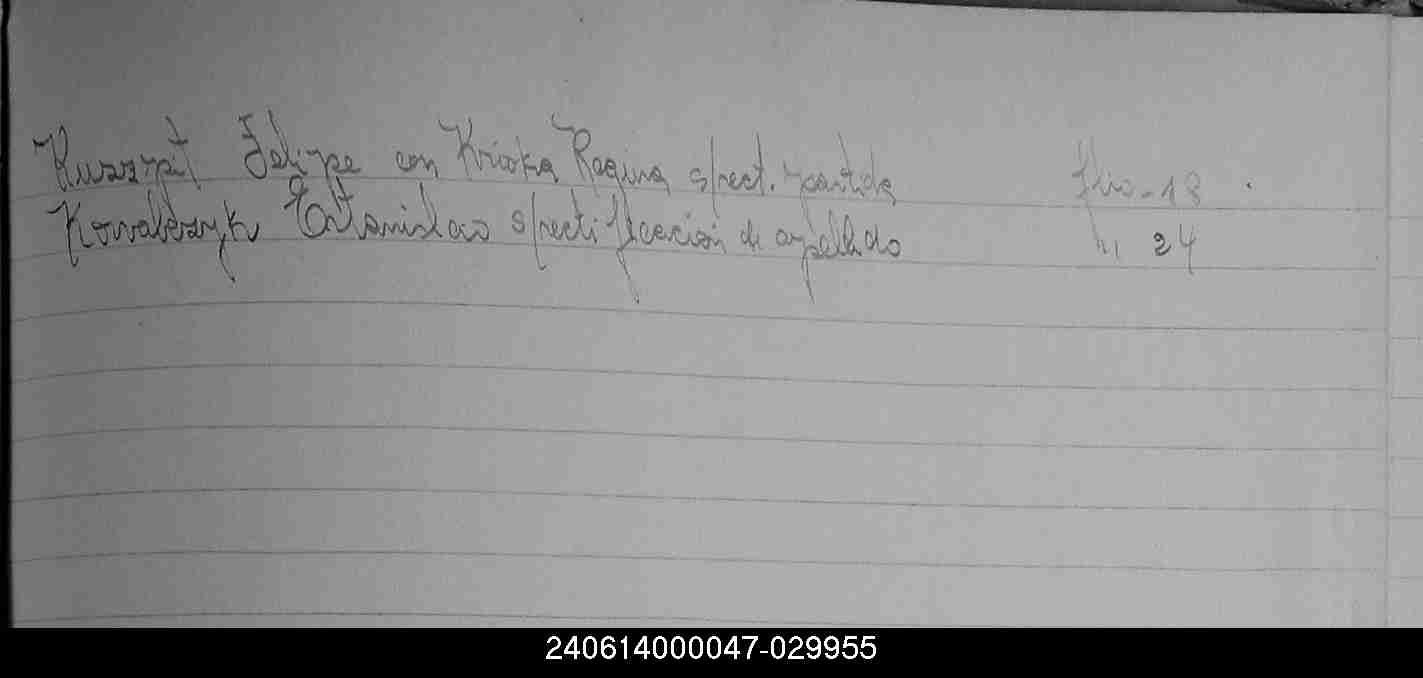 Felipe con Regina s/rect. partida flio - 18
Kowalczyk Estanislao s/rectificación de apellido " 24
240614000047-029955